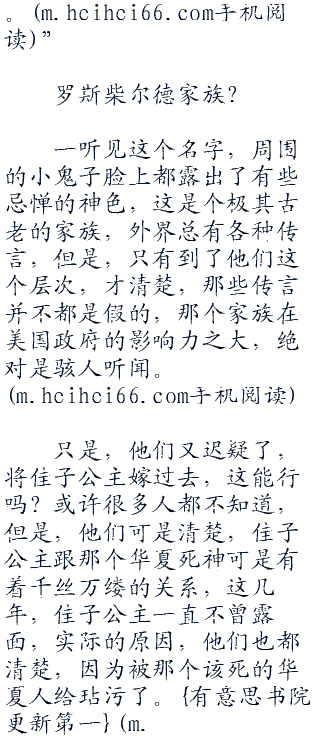 。(m.hcihci66.com手机阅
读)”
罗斯柴尔德家族？
一听见这个名字，周围
的小鬼子脸上都露出了有些
忌惮的神色，这是个极其古
老的家族，外界总有各种传
言，但是，只有到了他们这
个层次，才清楚，那些传言
并不都是假的，那个家族在
美国政府的影响力之大，绝
对是骇人听闻。
(m.hcihci66.com手机阅读)
只是，他们又迟疑了，
将佳子公主嫁过去，这能行
吗？或许很多人都不知道，
但是，他们可是清楚，佳子
公主跟那个华夏死神可是有
着千丝万缕的关系，这几
年，佳子公主一直不曾露
面，实际的原因，他们也都
清楚，因为被那个该死的华
夏人给玷污了。{有意思书院
更新第一}(m.